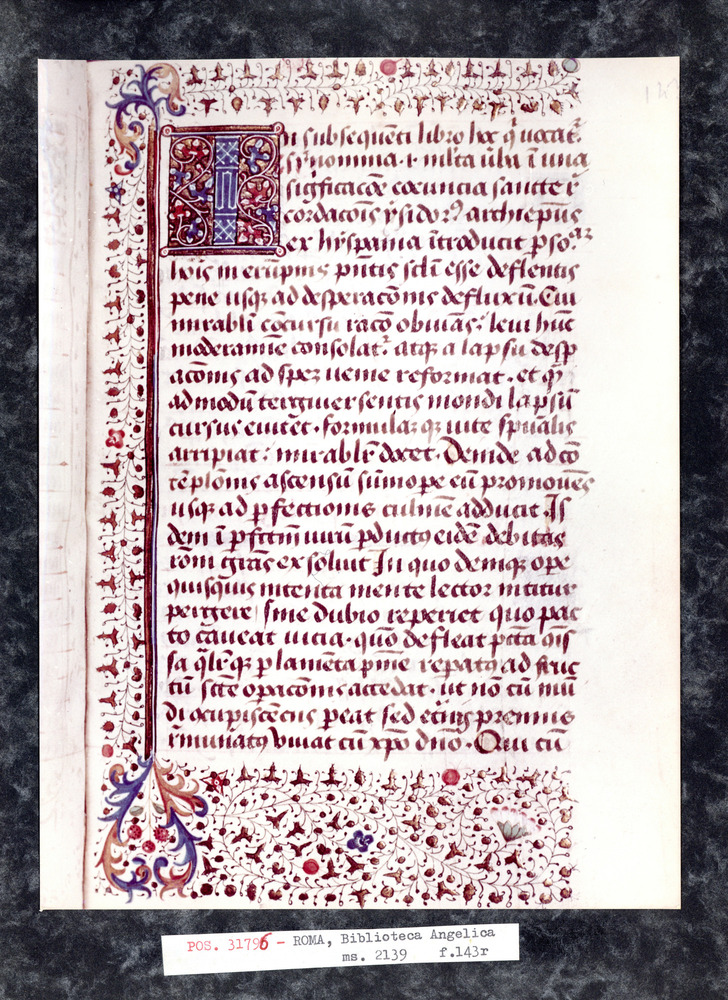 In subsequēti libro hoc q̄ vocat᷑
sy᷑nonima ⁊ mlta ūba ī unā
sigficacōꝫ coeuncia sancte r̄
cordacoīs ysidorꝰ archiep̄us
ex hyspania ītroducit ꝑso
hoīs in erūpnis pn̄tis sc̄li esse deflentis
pene usqꝫ ad desperacōnis defluxū. Cui
mirabli cōcursu racō obuiās: leui hūc
moderamine consolat᷑ atqꝫ a lapsu despe
acōnis ad speꝫ uenie reformat. et q̄
admodū tergiuersentis mondi lapsū
cursus euitet. formulaꝫ qꝫ uite spūalis
arripiat: mirablr̄ docet. Deinde ad cō
tēplonis ascensū sūmope eū promouēs
usqꝫ ad ꝑfectionis culmē adducit. Is
dem ī ꝑfc̄tm̄ uirū ꝑductꝰ eidē debitas
rōni grās exsoluit In quo deniqꝫ ope
quisquis intenta mente lector nititur
pergere sine dubio reperiet quo pac
to caueat uicia. quō defleat pc̄cā
sa qlr̄qꝫ ꝑ lamēta pn̄ie repatꝰ ad fruc
tū sc̄te opacōnis accedat. ut nō cū mū
di ꝯcupiscēciis peat sed et̄nis premiis
r̄munatꝰ viuat cū xp̄o dn̄o. Qui cū
POS. 31796 - ROMA, Biblioteca Angelica
ms. 2139 f.143r